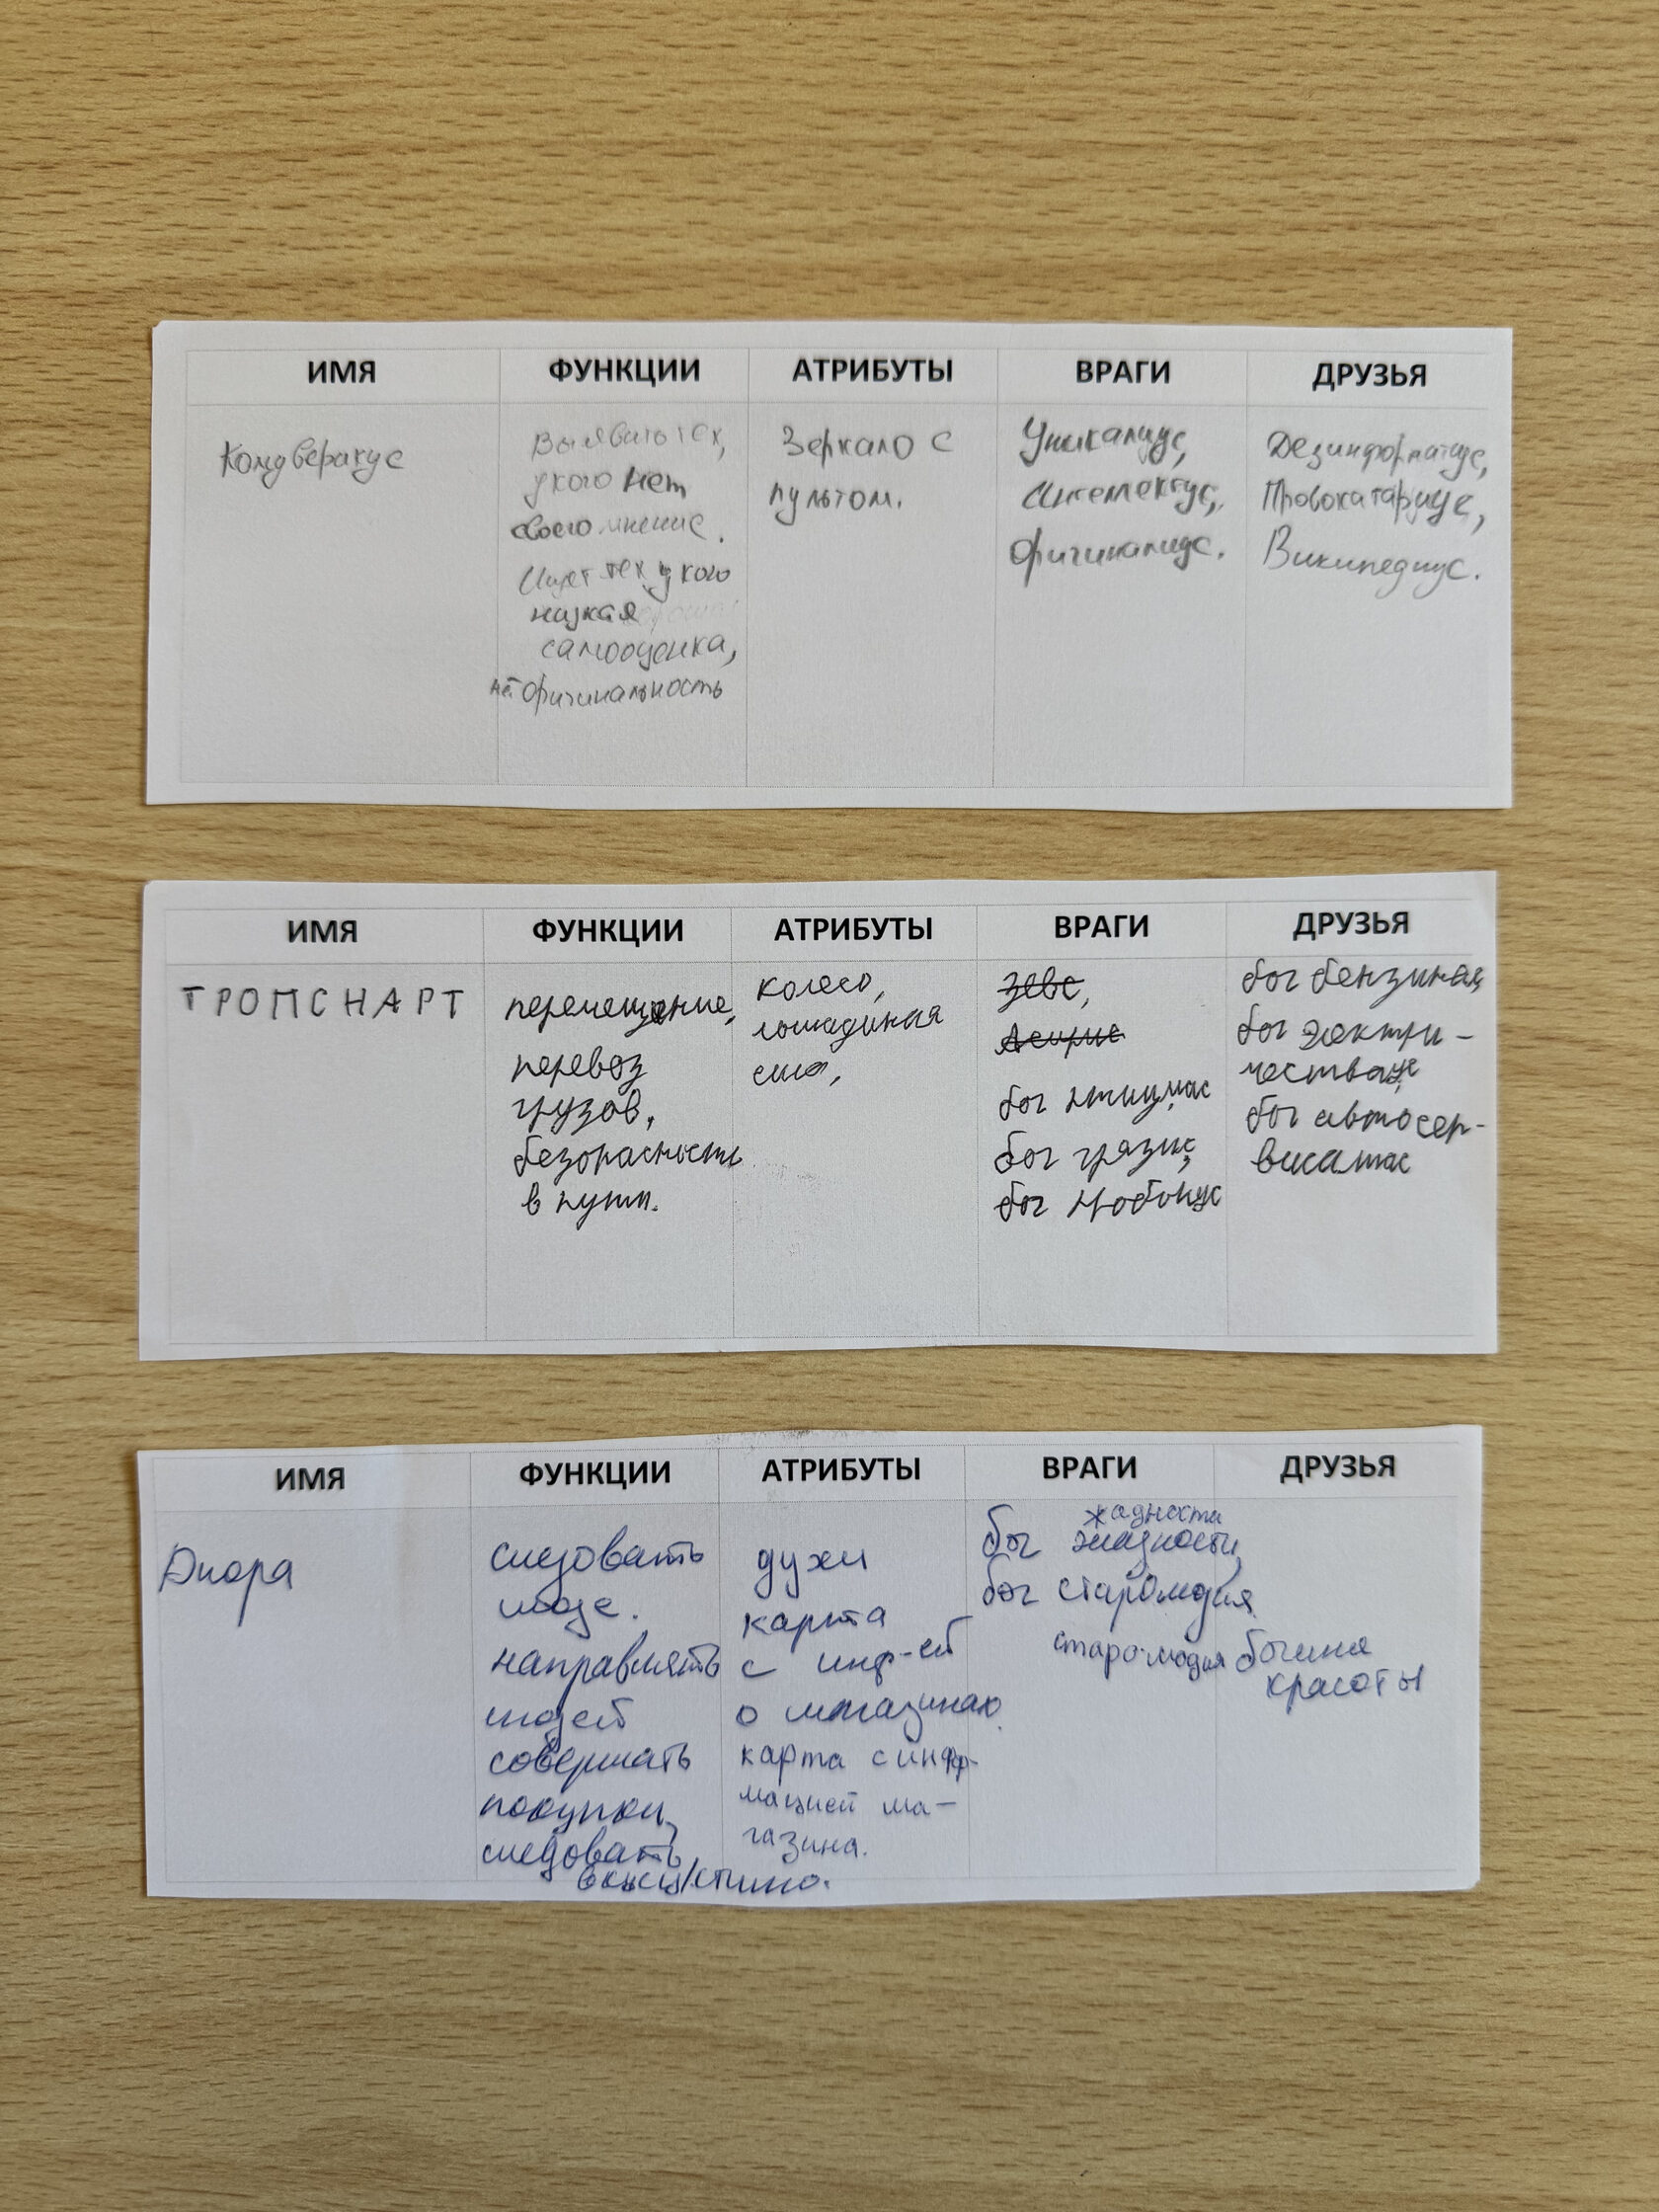 ИМЯ ФУНКЦИИ АТРИБУТЫ ВРАГИ ДРУЗЬЯ
Выявить тех,
у кого нет
своего мнение.
Ищет тех у кого
низкая
самооценка,
нет оригинальность
Зеркало с
пультом.
Уникалиус,
Интелектус,
Оригиналиус.
Дезинформатиус,
Провокатариус,
Википедиус.
ИМЯ ФУНКЦИИ АТРИБУТЫ ВРАГИ ДРУЗЬЯ
ТРОПСНАРТ
перемещение,
перевоз
грузов,
безопасность
в пути.
колесо,
лошадиная
сила,
Зевс,
бог
бог грязис,
бог пробокус
бог бензиная,
бог электри-
бог автосер-
висатос
ИМЯ ФУНКЦИИ АТРИБУТЫ ВРАГИ ДРУЗЬЯ
Диора
следовать
моде.
направлять
людей
совершать
покупки,
следовать
духи
карта
с инф-ей
о магазинах
карта с инфр-
мацией ма-
газина.
жадности
бог жадности,
бог старомодия
старо-модия
богиня
красоты